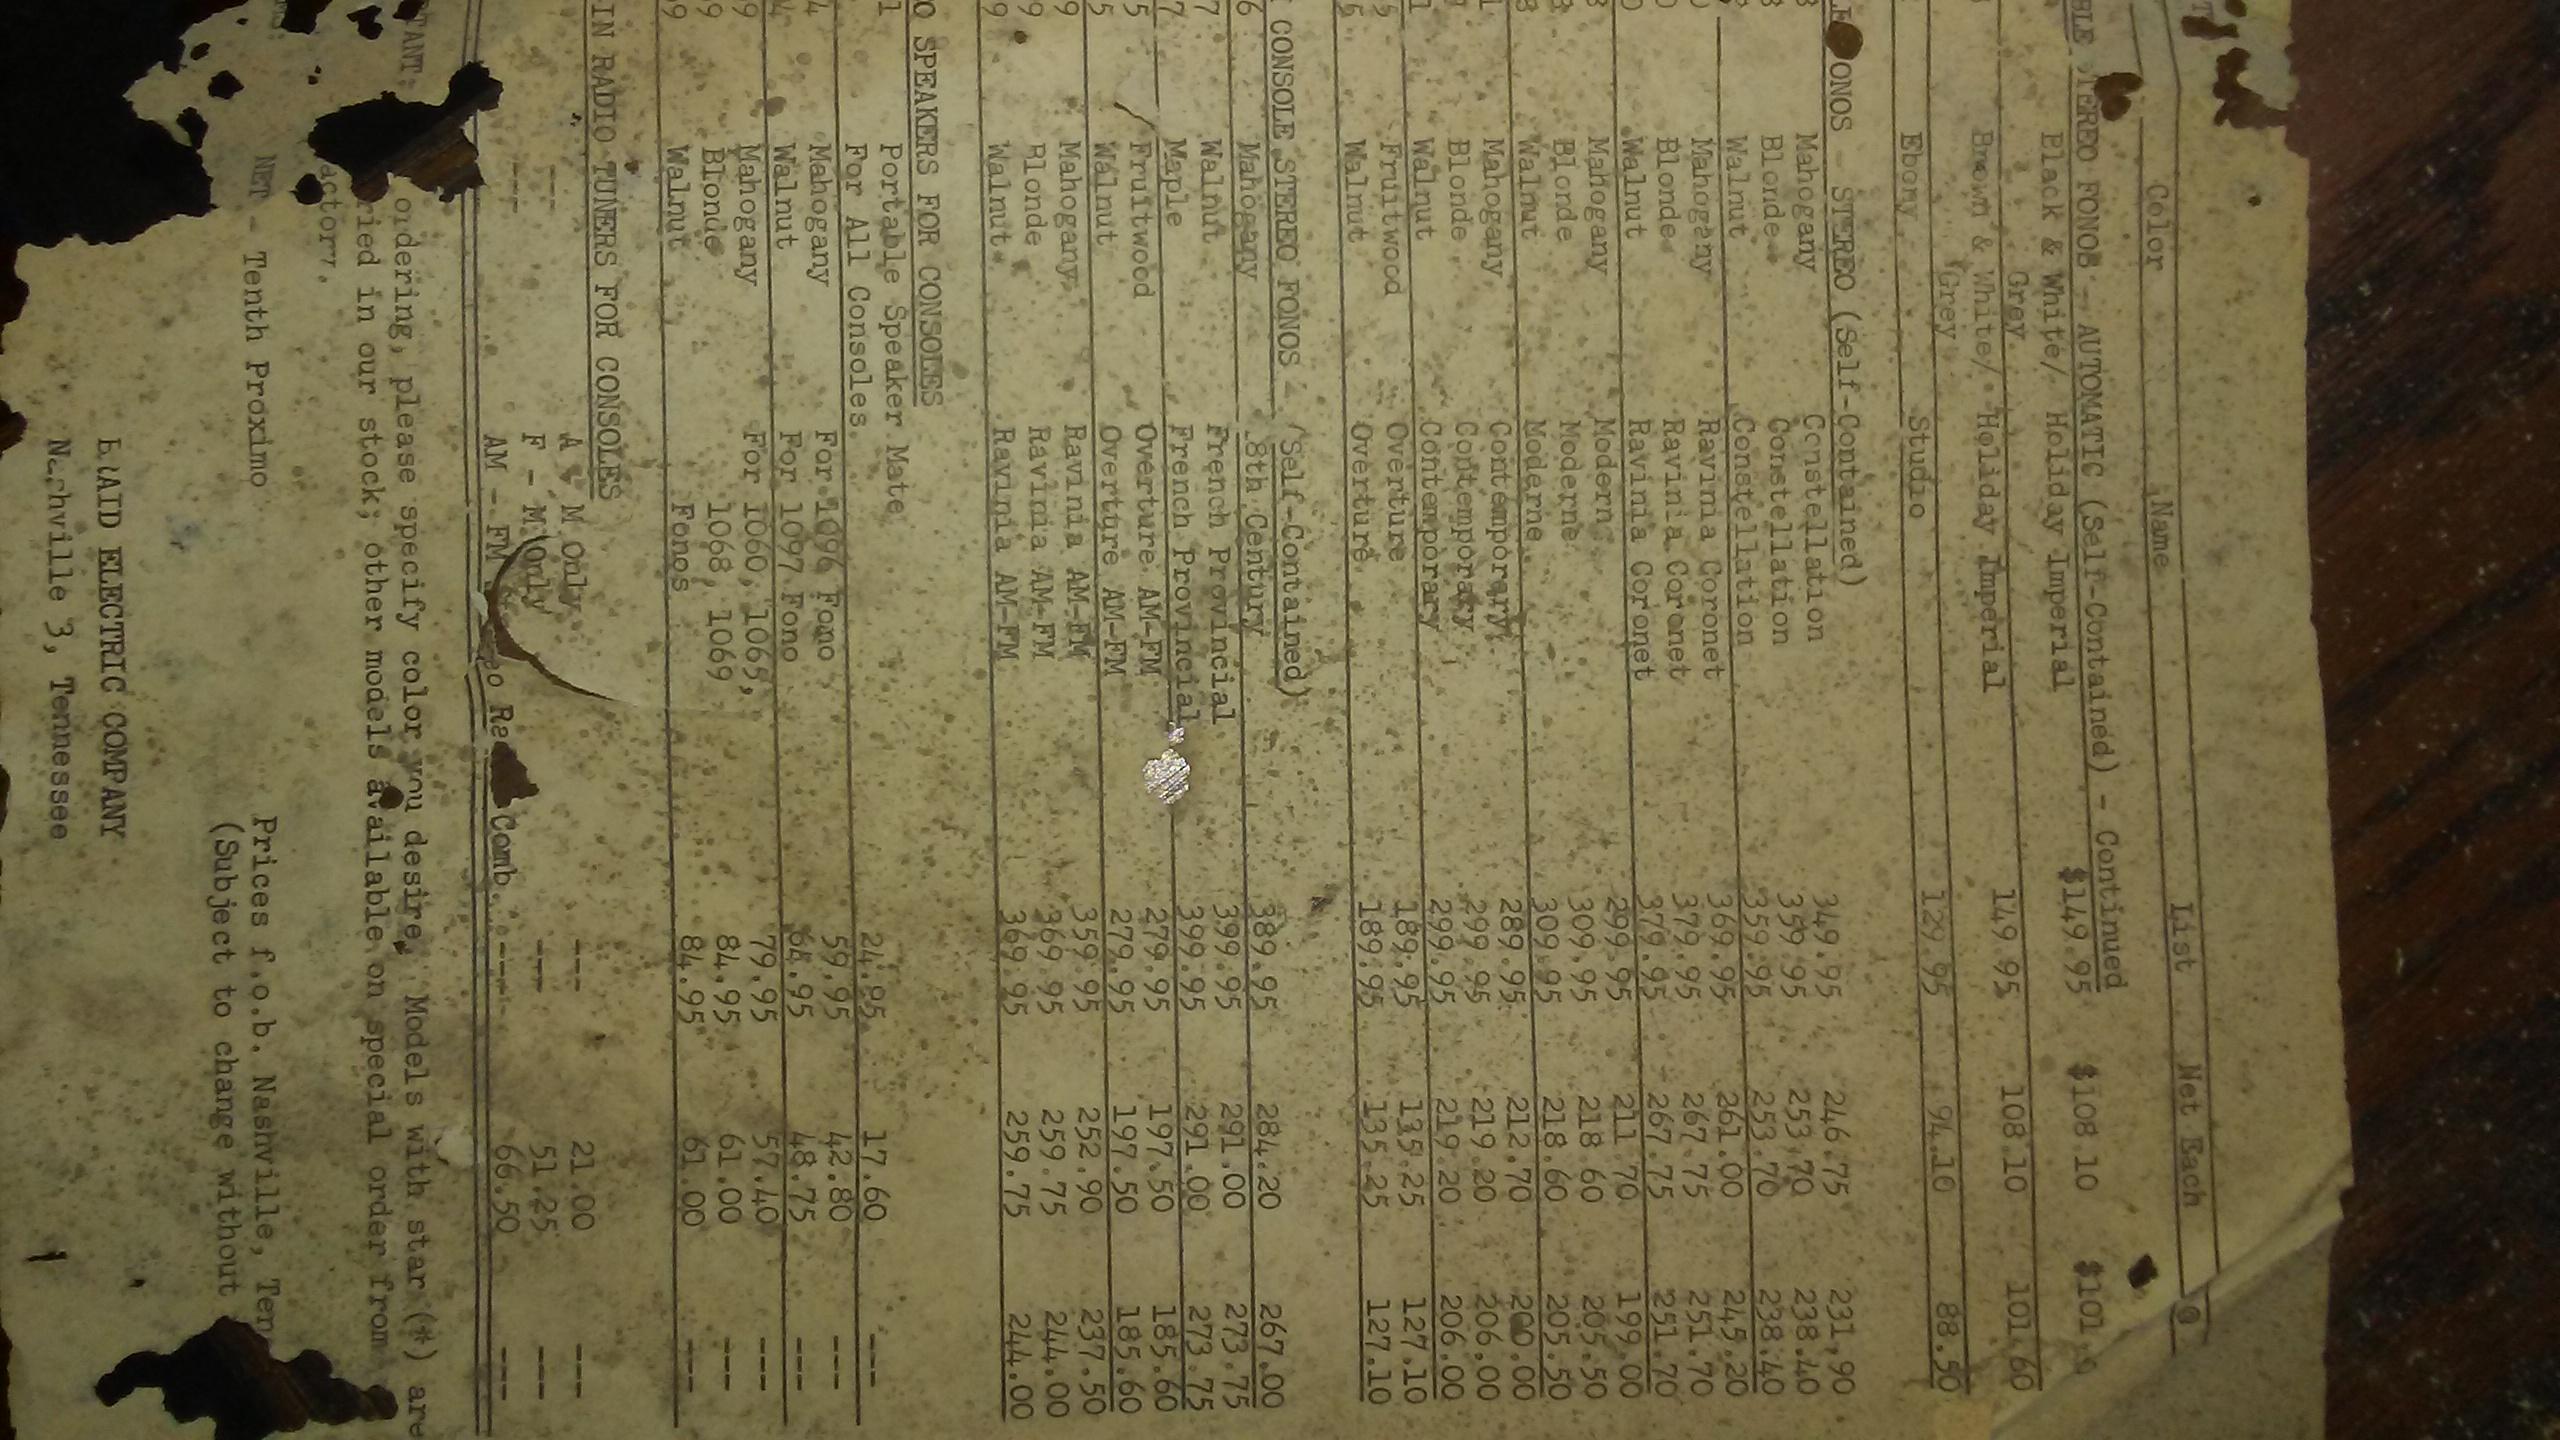 Color Name List Net Each @
STEREO FONOS - AUTOMATIC (Self-Contained) - Continued
Black & White/ Holiday Imperial $149.95 $108.10
Grey
Brown & White/ Holiday Imperial 149.95 108.10 101.60
Grey
Ebony Studio 129.95 94.10 88.50
ONOS - STEREO (Self-Contained)
Mahogany Constellation 349.95 246.75 231.90
Blonde Constellation 359.95 253.70 238.40
Walnut Constellation 359.95 253.70 238.40
Mahogany Ravinia Coronet 369.95 261.00 245.20
Blonde Ravinia Coronet 379.95 267.75 251.70
Walnut Ravinia Coronet 379.95 267.75 251.70
Mahogany Modern 299.95 211.70 199.00
Blonde Moderne 309.95 218.60 205.50
Walnut Moderne 309.95 218.60 205.50
Mahogany Contemporary 289.95 212.70 200.00
Blonde Contemporary 299.95 219.20 206.00
Walnut Contemporary 299.95 219.20 206.00
Fruitwood Overture 189.95 135.25 127.10
Walnut Overture 189.95 135.25 127.10
CONSOLE STEREO FONOS - (Self-Contained)
Mahogany 18th Century 389.95 284.20 267.00
Walnut French Provincial 399.95 291.00 273.75
Maple French Provincial 399.95 291.00 273.75
Fruitwood Overture AM-FM 279.95 197.50 185.60
Walnut Overture AM-FM 279.95 197.50 185.60
Mahogany Ravinia AM-FM 359.95 252.90 237.50
Blonde Ravinia AM-FM 369.95 259.75 244.00
Walnut Ravinia AM-FM 369.95 259.75 244.00
SPEAKERS FOR CONSOLES
Portable Speaker Mate 24.95 17.60 ---
For All Consoles
Mahogany For 1096 Fono 59.95 42.80 ---
Walnut For 1097 Fono 64.95 48.75 ---
Mahogany For 1060, 1065, 79.95 57.40 ---
Blonde 1068, 1069 84.95 61.00 ---
Walnut Fonos 84.95 61.00 ---
IN RADIO TUNERS FOR CONSOLES
--- A M Only --- 21.00 ---
--- F - M Only --- 51.25 ---
AM - FM Comb. --- 66.50 ---
ordering, please specify color you desire. Models with star (*) are
in our stock; other models available on special order from
NET - Tenth Proximo Prices f.o.b. Nashville,
(Subject to change without
ELECTRIC COMPANY
Nashville 3, Tennessee